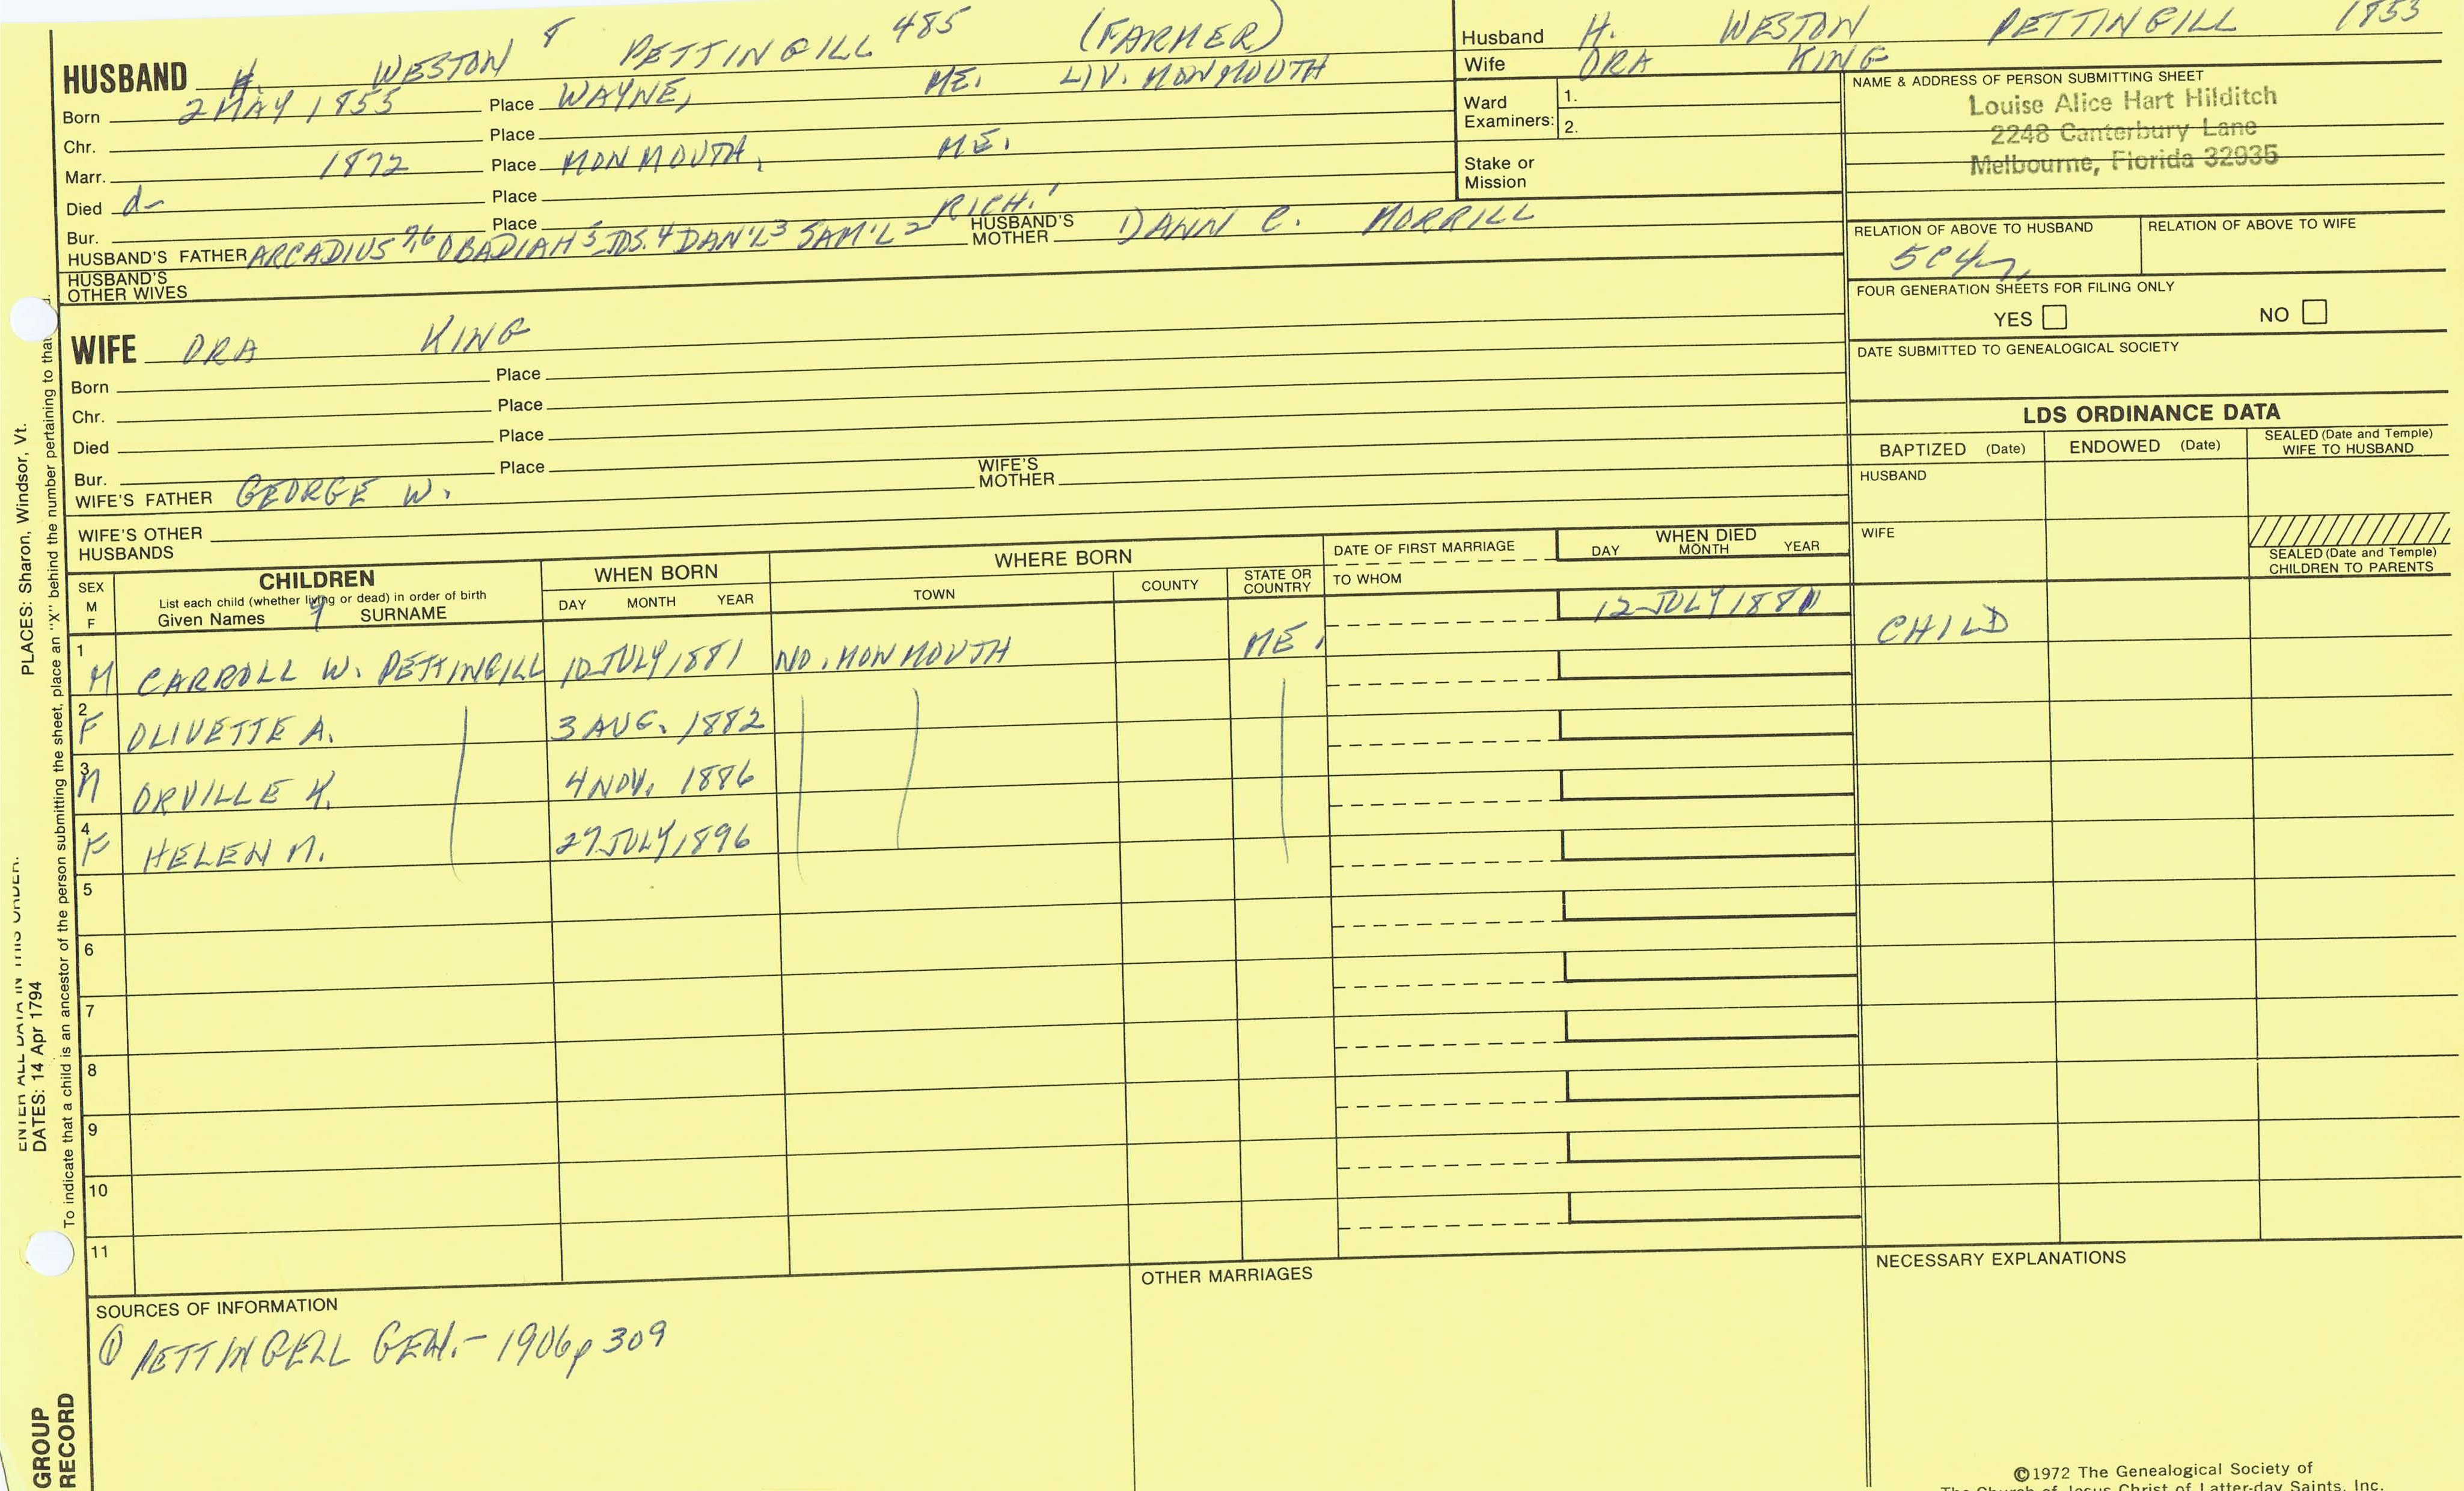 HUSBAND H. WESTON 8 PETTINGILL 485 (FARMER)
Born 2 MAY 1855 Place WAYNE, ME. LIV. MONMOUTH
Chr. Place
Marr. 1872 Place MONMOUTH, ME.
Died d- Place
Bur. Place
HUSBAND'S FATHER ARCADIUS 7,6 OBADIAH 5 JOS. 4 DAN'L 3 SAM'L 2 RICH. 1 HUSBAND'S MOTHER DAWN C. MORRILL
HUSBAND'S OTHER WIVES
Husband H. WESTON PETTINGILL 1853
Wife ORA KING
Ward Examiners: 1.
2.
Stake or Mission
NAME & ADDRESS OF PERSON SUBMITTING SHEET
Louise Alice Hart Hilditch
2248 Canterbury Lane
Melbourne, Florida 32935
RELATION OF ABOVE TO HUSBAND RELATION OF ABOVE TO WIFE
FOUR GENERATION SHEETS FOR FILING ONLY
YES NO
DATE SUBMITTED TO GENEALOGICAL SOCIETY
WIFE ORA KING
Born Place
Chr. Place
Died Place
Bur. Place
WIFE'S FATHER GEORGE W. WIFE'S MOTHER
WIFE'S OTHER HUSBANDS
LDS ORDINANCE DATA
BAPTIZED (Date) ENDOWED (Date) SEALED (Date and Temple) WIFE TO HUSBAND
HUSBAND
WIFE
SEALED (Date and Temple) CHILDREN TO PARENTS
SEX M F
CHILDREN
List each child (whether living or dead) in order of birth
Given Names 9 SURNAME
WHEN BORN
DAY MONTH YEAR
WHERE BORN
TOWN COUNTY STATE OR COUNTRY
DATE OF FIRST MARRIAGE
TO WHOM
WHEN DIED
DAY MONTH YEAR
1 M CARROLL W. PETTINGILL 10 JULY 1881 NO. MONMOUTH ME. 12 JULY 1881 CHILD
2 F OLIVETTE A. 3 AUG. 1882
3 M ORVILLE K. 4 NOV. 1886
4 F HELEN M. 27 JULY 1896
5
6
7
8
9
10
11
SOURCES OF INFORMATION
① PETTINGELL GEN.- 1906 p 309
OTHER MARRIAGES
NECESSARY EXPLANATIONS
©1972 The Genealogical Society of
The Church of Jesus Christ of Latter-day Saints, Inc.
ENTER ALL DATA IN THIS ORDER:
DATES: 14 Apr 1794 PLACES: Sharon, Windsor, Vt.
To indicate that a child is an ancestor of the person submitting the sheet, place an "X" behind the number pertaining to that
GROUP
RECORD